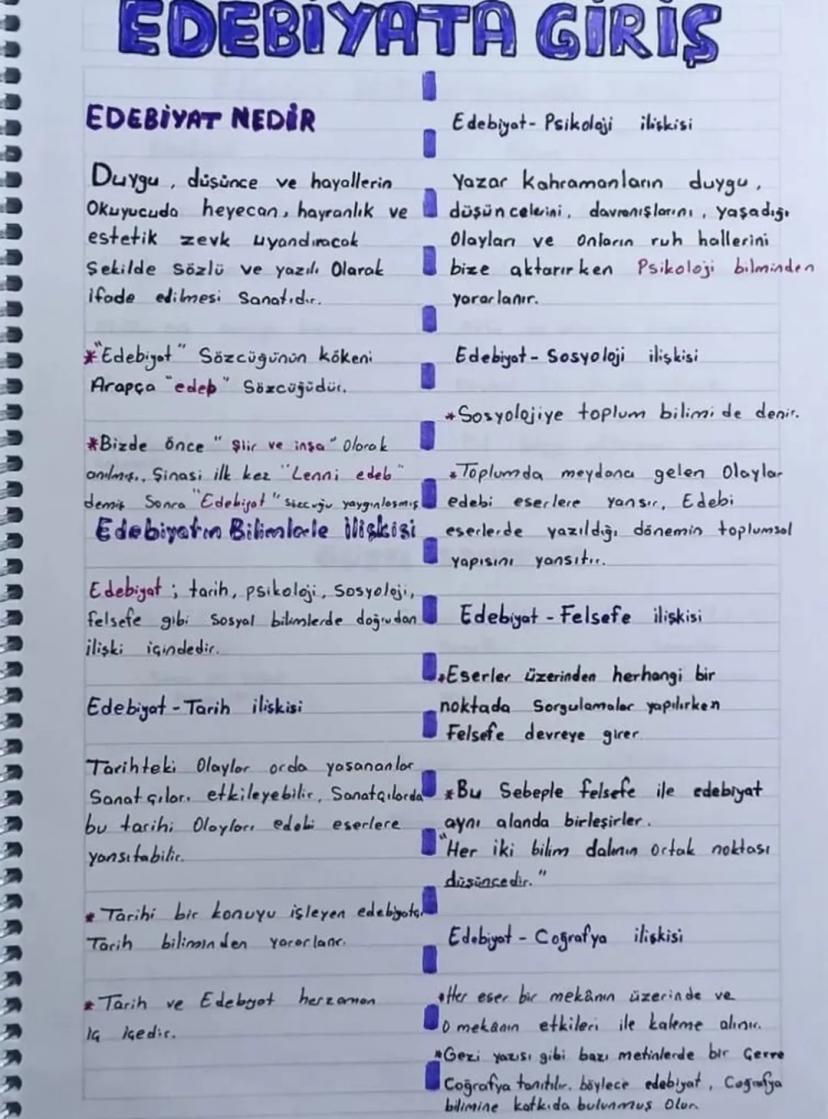 EDEBİYATA GİRİŞ
EDEBİYAT NEDİR
Duygu, düşünce ve hayallerin
Okuyucuda heyecan, hayranlık ve
estetik zevk uyandıracak
Şekilde Sözlü ve yazılı Olarak
ifade edilmesi Sanatıdır.
*"Edebiyat" Sözcüğünün kökeni
Arapça "edeb" Sözcüğüdür.
*Bizde önce "Şiir ve inşa" Olarak
anılmış., Şinasi ilk kez "Lenni edeb"
demiş Sonra "Edebiyat" sözcüğü yaygınlaşmış
Edebiyatın Bilimlerle ilişkisi
Edebiyat; tarih, psikoloji, Sosyoloji,
felsefe gibi Sosyal bilimlerde doğrudan
ilişki içindedir.
Edebiyat-Tarih ilişkisi
Tarihteki Olaylar orda yaşananlar
Sanatçıları etkileyebilir. Sanatçılarda
bu tarihi Olayları edebi eserlere
yansıtabilir.
* Tarihi bir konuyu işleyen edebiyatçı
Tarih biliminden yararlanır.
* Tarih ve Edebiyat herzaman
İç İçedir.
Edebiyat-Psikoloji ilişkisi
Yazar Kahramanların duygu,
düşüncelerini, davranışlarını, yaşadığı
Olayları ve Onların ruh hallerini
bize aktarırken Psikoloji bilminden
yararlanır.
Edebiyat-Sosyoloji ilişkisi
*Sosyolojiye toplum bilimi de denir.
*Toplumda meydana gelen Olaylar
edebi eserlere yansır, Edebi
eserlerde yazıldığı dönemin toplumsal
yapısını yansıtır.
Edebiyat-Felsefe ilişkisi
*Eserler üzerinden herhangi bir
noktada Sorgulamalar yapılırken
Felsefe devreye girer.
*Bu Sebeple felsefe ile edebiyat
aynı alanda birleşirler.
"Her iki bilim dalının Ortak noktası
düşüncedir."
Edebiyat-Coğrafya ilişkisi
*Her eser bir mekânın üzerinde ve
O mekânın etkileri ile kaleme alınır.
*Gezi yazısı gibi bazı metinlerde bir Çevre
Coğrafya tanıtılır. böylece edebiyat, Coğrafya
bilimine katkıda bulunmuş Olur.